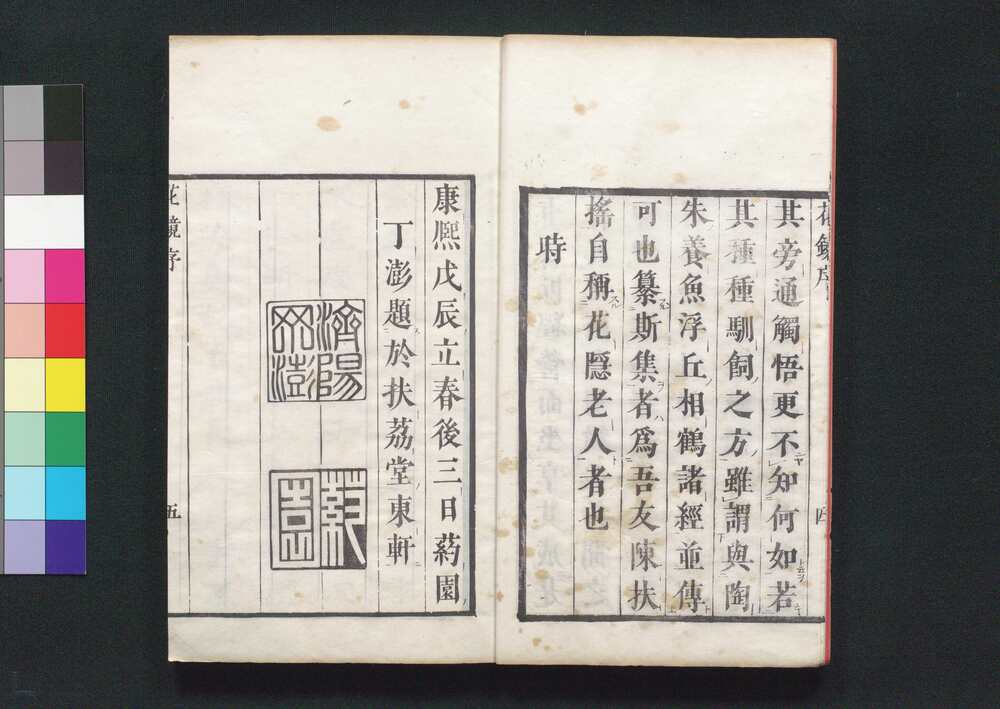 花鏡序
其旁通觸悟更不知何如若
其種種馴飼之方雖謂與陶
朱養魚浮丘相鶴諸經並傳
可也纂斯集者爲吾友陳扶
搖自稱花隱老人者也
時
四
康熙戊辰立春後三日葯園
丁澎題於扶荔堂東軒
濟陽
丁澎
葯園
花鏡序
五